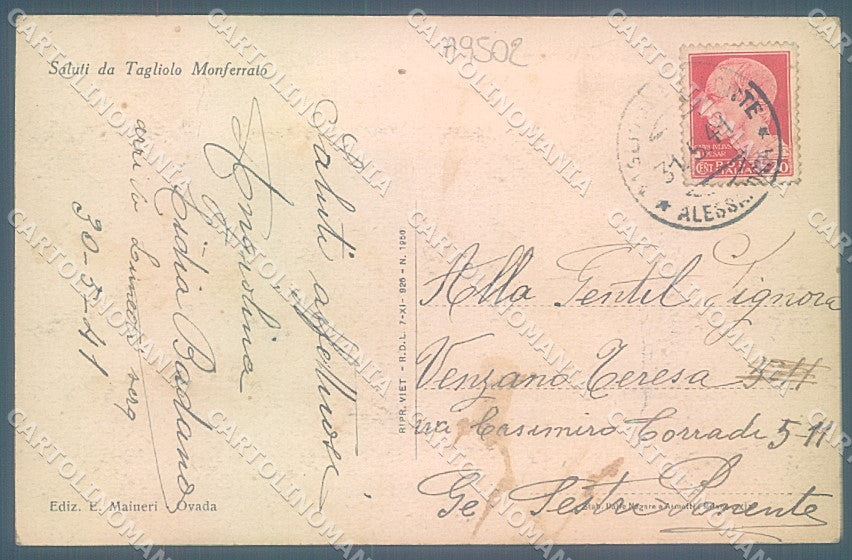 A9502
Saluti da Tagliolo Monferrato
Saluti affettuosi
Angiolina
Lidia Badano
30-5-41
Ediz. E. Maineri - Ovada
RIPR. VIET - R.D.L. 7-XI- 926 - N. 1950
ALESSAND
CEST 20
Alla Gentil Signora
Venzano Teresa
via Casimiro Corradi 5-11
Ge Sestri Ponente
CARTOLINOMANIA